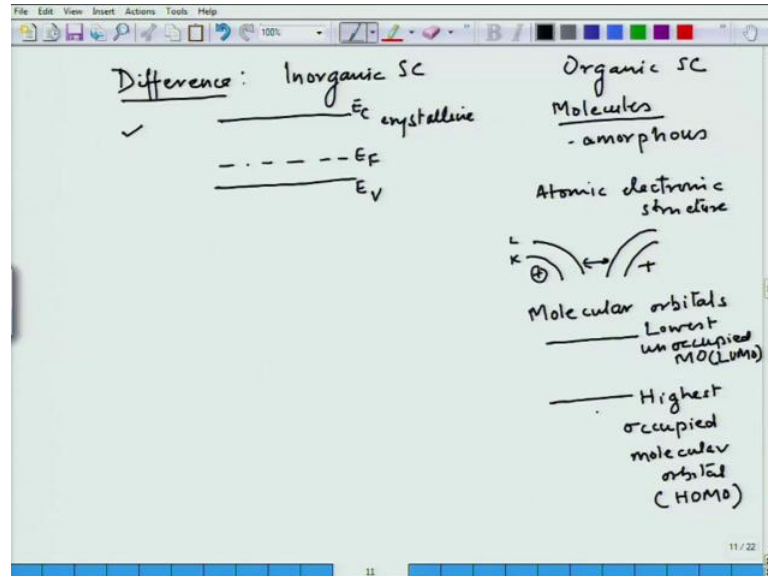 File Edit View Insert Actions Tools Help
100%
B I
Difference: Inorganic SC
Organic SC
Ec crystalline
Molecules
- amorphous
EF
Ev
Atomic electronic
structure
L
K
+ +
Molecular orbitals
Lowest
unoccupied
MO(LUMO)
Highest
occupied
molecular
orbital
(HOMO)
11 / 22
11